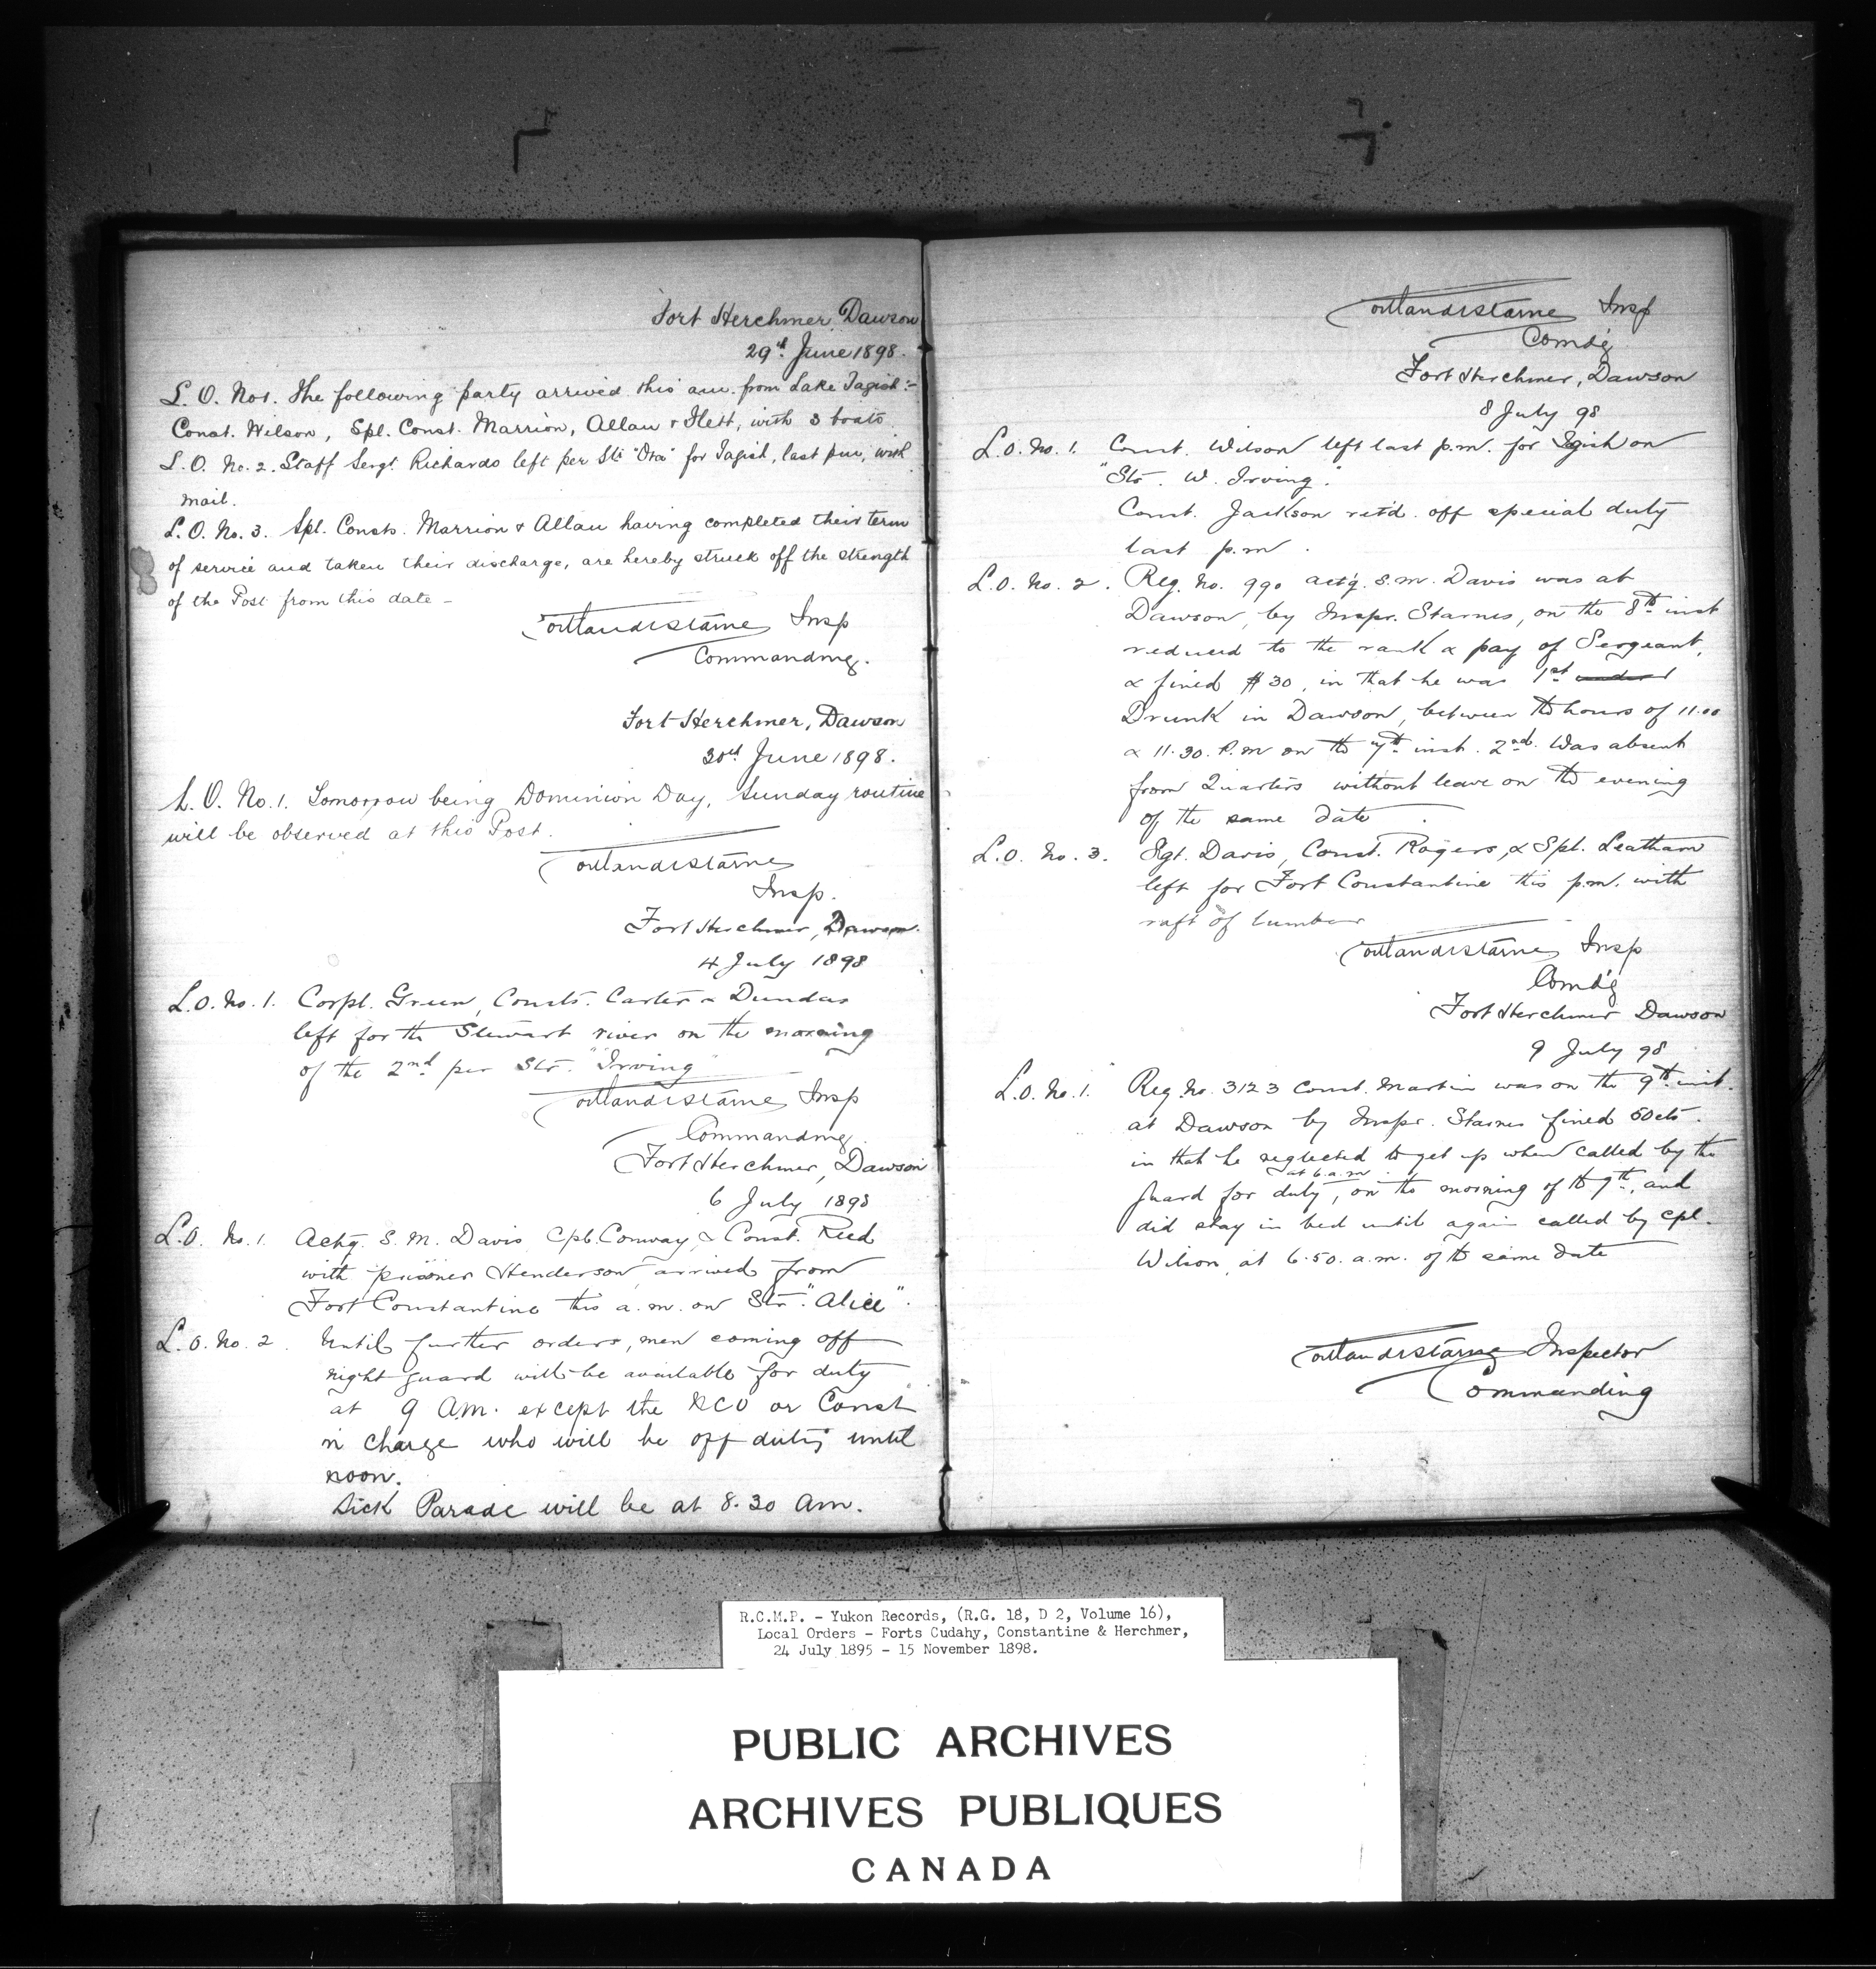 Fort Herchmer, Dawson
29th June 1898.
L. O. No 1. The following party arrived this am. from Lake Tagish:-
Const. Wilson, Spl. Const. Marrion, Allan & Ilett, with 3 boats
L. O. No. 2. Staff Sergt. Richards left per Str "Ora" for Tagish, last pm, with
mail.
L. O. No. 3. Spl. Consts. Marrion & Allan having completed their term
of service and taken their discharge, are hereby struck off the strength
of the Post from this date -
Cortlandt Starnes Insp
Commanding.
Fort Herchmer, Dawson
30th June 1898.
L. O. No. 1. Tomorrow being Dominion Day, Sunday routine
will be observed at this Post.
Cortlandt Starnes
Insp.
Fort Herchmer, Dawson.
4 July 1898
L.O. No. 1. Corpl. Green, Consts. Carter & Dundas
left for the Stewart river on the morning
of the 2nd per Str. "Irving"
Cortlandt Starnes Insp
Commanding.
Fort Herchmer, Dawson
6 July 1898
L.O. No. 1. Actg. S. M. Davis, Cpl. Conway, & Const. Reed
with prisoner Henderson arrived from
Fort Constantine this a.m. on Str. "Alice".
L.O. No. 2. Until further orders, men coming off
night guard will be available for duty
at 9 A.M. except the NCO or Const
in charge who will be off duty until
noon.
Sick Parade will be at 8.30 Am.
Cortlandt Starnes Insp
Comdg
Fort Herchmer, Dawson
8 July 98
L.O. No. 1. Const. Wilson left last p.m. for Tagish on
"Str. W. Irving".
Const. Jackson retd. off special duty
last p.m.
L.O. No. 2. Reg. No. 990 actg. S.M. Davis was at
Dawson, by Inspr. Starnes, on the 8th inst
reduced to the rank & pay of Sergeant,
& fined $30, in that he was 1st
Drunk in Dawson, between the hours of 11.00
& 11.30. P.m on the 7th inst. 2nd. Was absent
from Quarters without leave on the evening
of the same date.
L.O. No. 3. Sgt. Davis, Const. Rogers, & Spl. Leatham
left for Fort Constantine this p.m. with
raft of lumber
Cortlandt Starnes Insp
Comdg
Fort Herchmer Dawson
9 July 98
L.O. No. 1. Reg. No. 3123 Const. Martin was on the 9th inst.
at Dawson by Inspr. Starnes fined 50cts.
in that he neglected to get up when called by the
at 6 a.m.
guard for duty, on the morning of the 9th, and
did stay in bed until again called by Cpl.
Wilson, at 6.50. a.m. of the same date
Cortlandt Starnes Inspector
Commanding
R.C.M.P. - Yukon Records, (R.G. 18, D 2, Volume 16),
Local Orders - Forts Cudahy, Constantine & Herchmer,
24 July 1895 - 15 November 1898.
PUBLIC ARCHIVES
ARCHIVES PUBLIQUES
CANADA